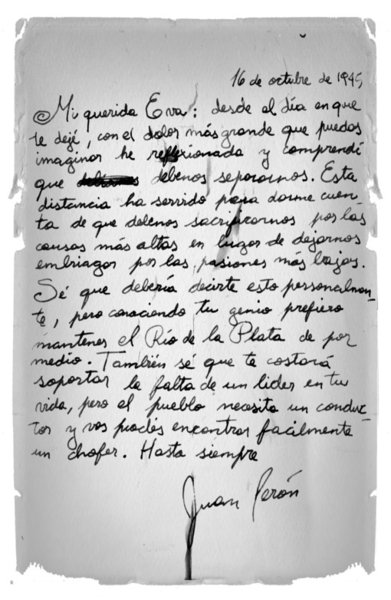 16 de octubre de 1945
Mi querida Eva: desde el día en que
te dejé, con el dolor más grande que puedas
imaginar he reflexionado y comprendí
que debenos separarnos. Esta
distancia ha servido para darme cuen-
ta de que debemos sacrificarnos por las
causas más altas en lugar de dejarnos
embriagar por las pasiones más bajas.
Sé que debería decirte esto personalmen-
te, pero conociendo tu genio prefiero
mantener el Río de la Plata de por
medio. También sé que te costará
soportar la falta de un lider en tu
vida, pero el pueblo necesita un conduc-
tor y vos podés encontrar facilmente
un chofer. Hasta siempre
Juan Perón